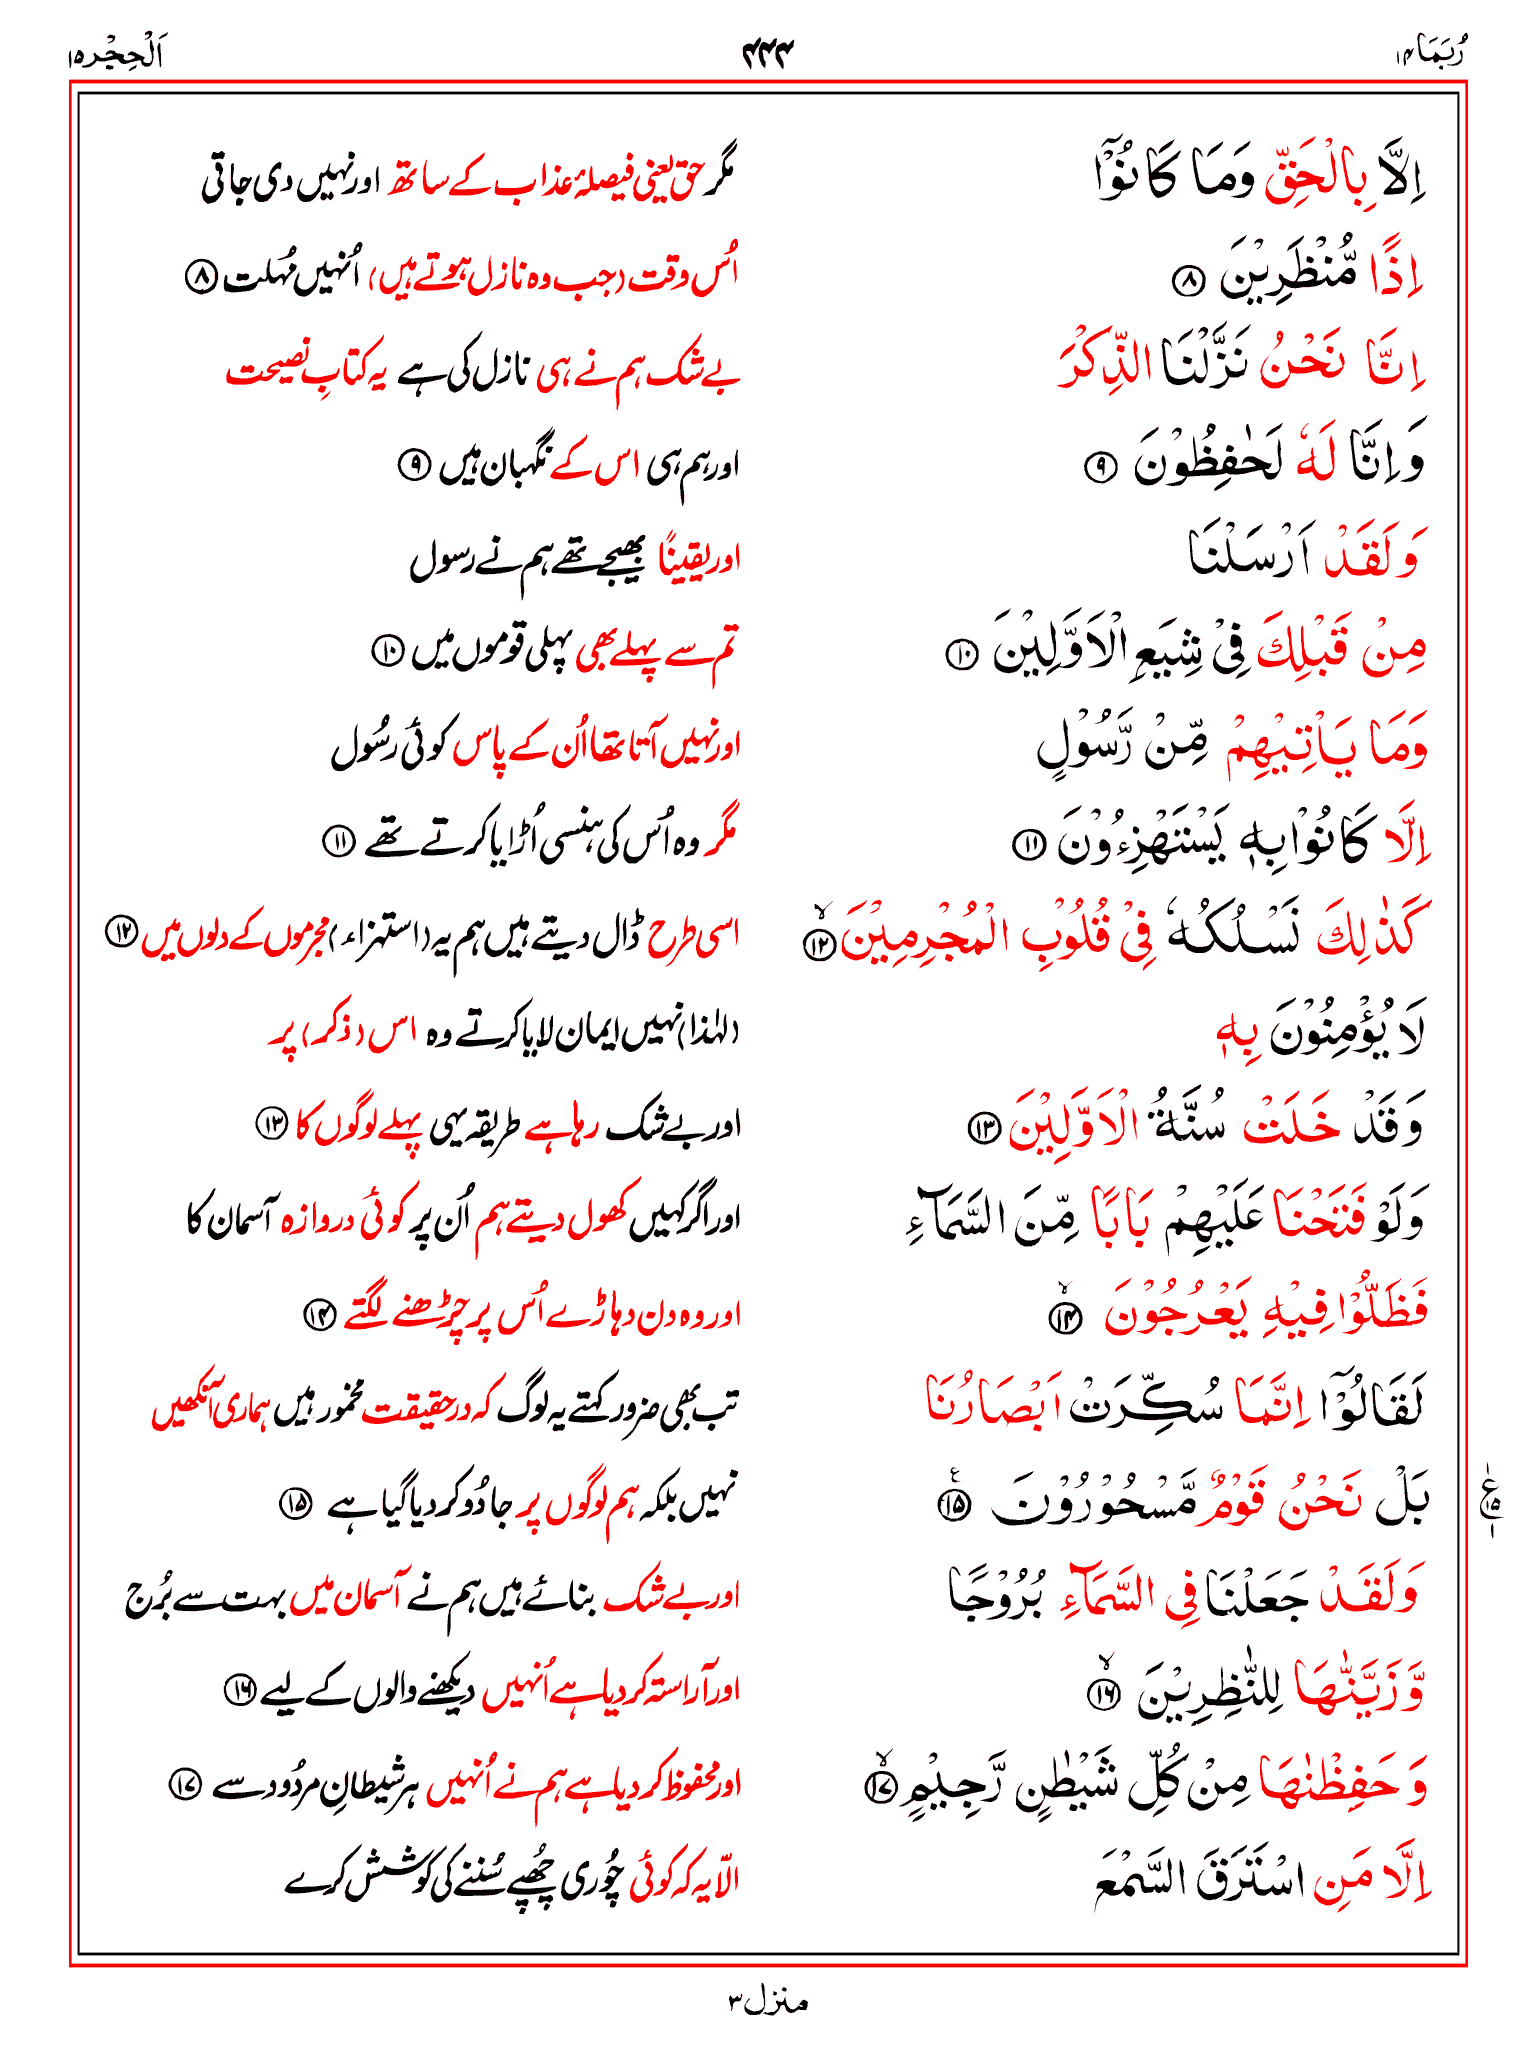 رُبَمَا ۱۴ ۴۴۴ اَلْحِجْر ۱۵
اِلَّا بِالْحَقِّ وَمَا كَانُوْۤا مگر حق یعنی فیصلۂ عذاب کے ساتھ اور نہیں دی جاتی
اِذًا مُّنْظَرِيْنَ ۸ اُس وقت (جب وہ نازل ہوتے ہیں) اُنہیں مُہلت ۸
اِنَّا نَحْنُ نَزَّلْنَا الذِّكْرَ بے شک ہم نے ہی نازل کی ہے یہ کتابِ نصیحت
وَاِنَّا لَهٗ لَحٰفِظُوْنَ ۹ اور ہم ہی اس کے نگہبان ہیں ۹
وَلَقَدْ اَرْسَلْنَا اور یقینًا بھیجے تھے ہم نے رسول
مِنْ قَبْلِكَ فِيْ شِيَعِ الْاَوَّلِيْنَ ۱۰ تم سے پہلے بھی پہلی قوموں میں ۱۰
وَمَا يَاْتِيْهِمْ مِّنْ رَّسُوْلٍ اور نہیں آتا تھا اُن کے پاس کوئی رسُول
اِلَّا كَانُوْا بِهٖ يَسْتَهْزِءُوْنَ ۱۱ مگر وہ اُس کی ہنسی اُڑایا کرتے تھے ۱۱
كَذٰلِكَ نَسْلُكُهٗ فِيْ قُلُوْبِ الْمُجْرِمِيْنَ ۙ۱۲ اسی طرح ڈال دیتے ہیں ہم یہ (استہزاء) مجرموں کے دلوں میں ۱۲
لَا يُؤْمِنُوْنَ بِهٖ (لہٰذا) نہیں ایمان لایا کرتے وہ اس (ذکر) پر
وَقَدْ خَلَتْ سُنَّةُ الْاَوَّلِيْنَ ۱۳ اور بے شک رہا ہے طریقہ یہی پہلے لوگوں کا ۱۳
وَلَوْ فَتَحْنَا عَلَيْهِمْ بَابًا مِّنَ السَّمَآءِ اور اگر کہیں کھول دیتے ہم اُن پر کوئی دروازہ آسمان کا
فَظَلُّوْا فِيْهِ يَعْرُجُوْنَ ۙ۱۴ اور وہ دن دہاڑے اُس پر چڑھنے لگتے ۱۴
لَقَالُوْۤا اِنَّمَا سُكِّرَتْ اَبْصَارُنَا تب بھی ضرور کہتے یہ لوگ کہ درحقیقت مخمور ہیں ہماری آنکھیں
بَلْ نَحْنُ قَوْمٌ مَّسْحُوْرُوْنَ ۱۵ع نہیں بلکہ ہم لوگوں پر جادُو کر دیا گیا ہے ۱۵
ع ۱۵ ۱
وَلَقَدْ جَعَلْنَا فِي السَّمَآءِ بُرُوْجًا اور بے شک بنائے ہیں ہم نے آسمان میں بہت سے بُرج
وَّزَيَّنّٰهَا لِلنّٰظِرِيْنَ ۙ۱۶ اور آراستہ کر دیا ہے اُنہیں دیکھنے والوں کے لیے ۱۶
وَحَفِظْنٰهَا مِنْ كُلِّ شَيْطٰنٍ رَّجِيْمٍ ۙ۱۷ اور محفوظ کر دیا ہے ہم نے اُنہیں ہر شیطانِ مردُود سے ۱۷
اِلَّا مَنِ اسْتَرَقَ السَّمْعَ الّا یہ کہ کوئی چُوری چُھپے سُننے کی کوشش کرے
منزل ۳